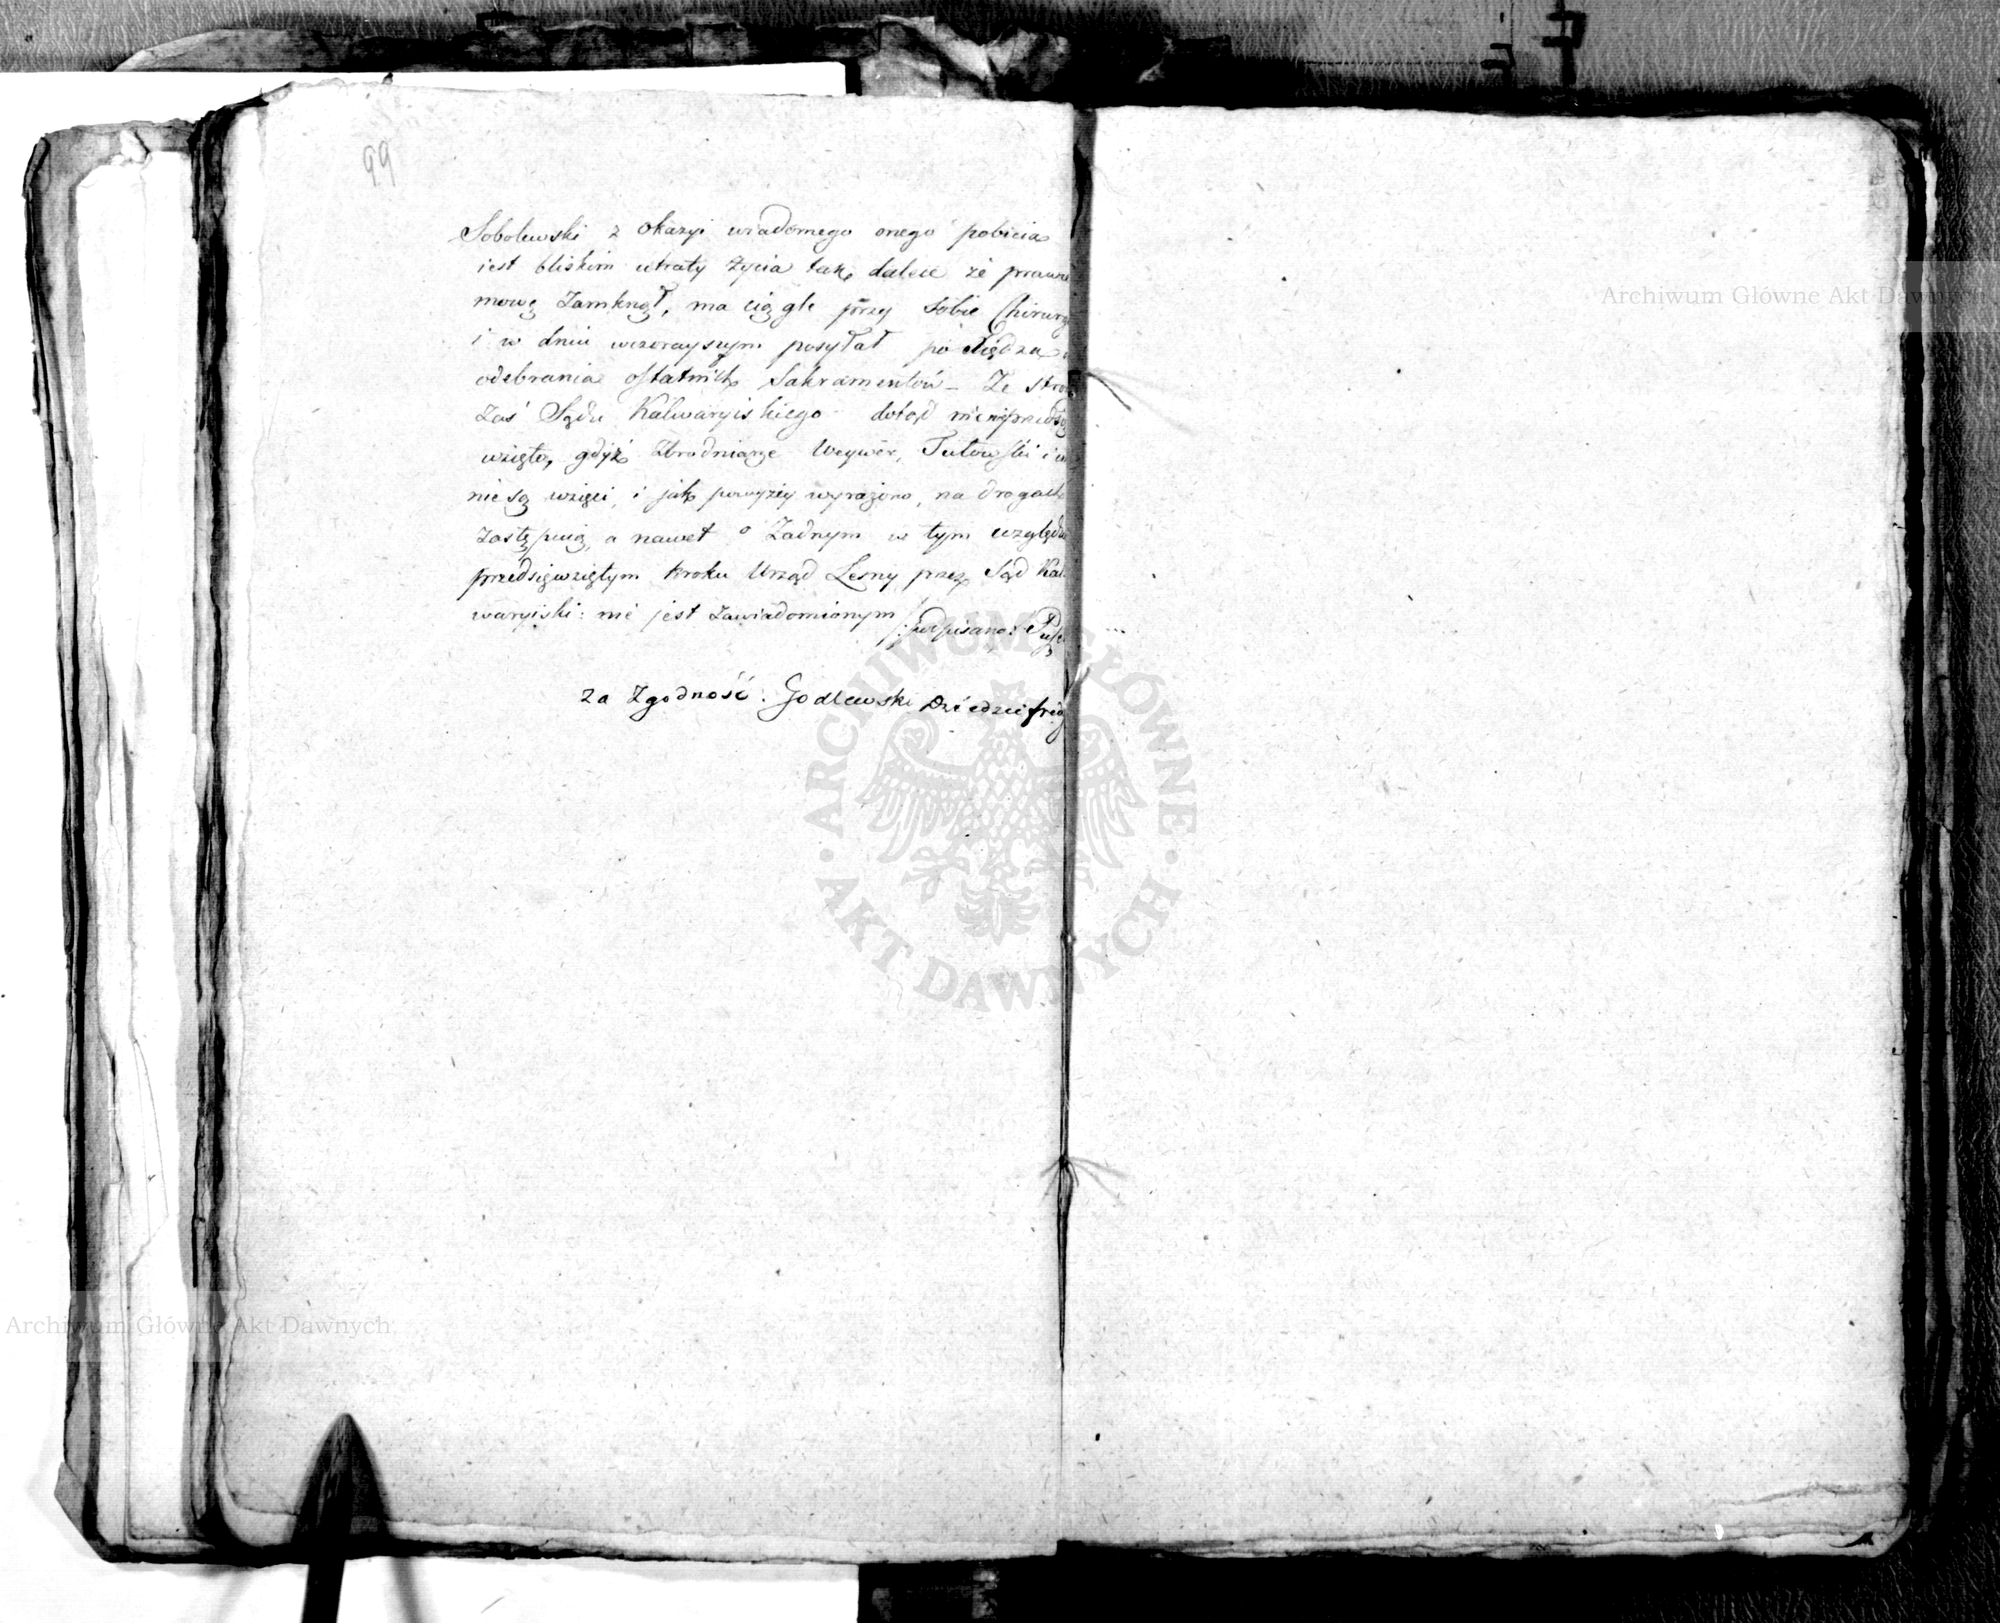 99
Sobolewski z okazyi wiadomego onego pobicia
iest bliskim utraty życia tak dalece że prawie
mowę zamknął, ma ciągle przy sobie Chirurg
i w dniu wczorayszym posyłał po Xiędza
odebrania ostatnich Sakramentów – Ze stro
zaś Sądu Kalwaryiskiego dotąd nic nieprzedsię
wzięto, gdyż Zbrodniarze Weywer, Tutowski i
nie są wzięci, i jak powyżey wyrażono, na drogach
zastępuią, a nawet o żadnym w tym względzie
przedsięwziętym kroku Urząd Leśny przez Sąd Kal
waryiski: nie jest zawiadomionym
/:podpisano:
Za Zgodność: Godlewski
Archiwum Główne Akt Dawnych
Archiwum Główne Akt Dawnych
ARCHIWUM GŁÓWNE
AKT DAWNYCH